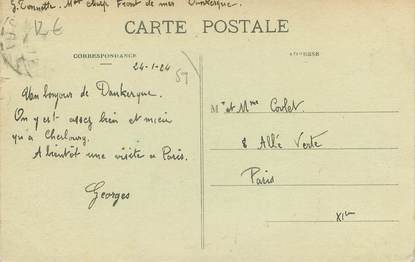 G. Tonnette. Mtre chef Front de mer Dunkerque.
12€
CARTE POSTALE
CORRESPONDANCE
ADRESSE
24-1-24
59
Un bonjour de Dunkerque.
On y est assez bien et mieux
qu'à Cherbourg.
A bientôt une visite à Paris.
Georges
M. et Mme Coulet
8 Allée Verte
Paris
XIème